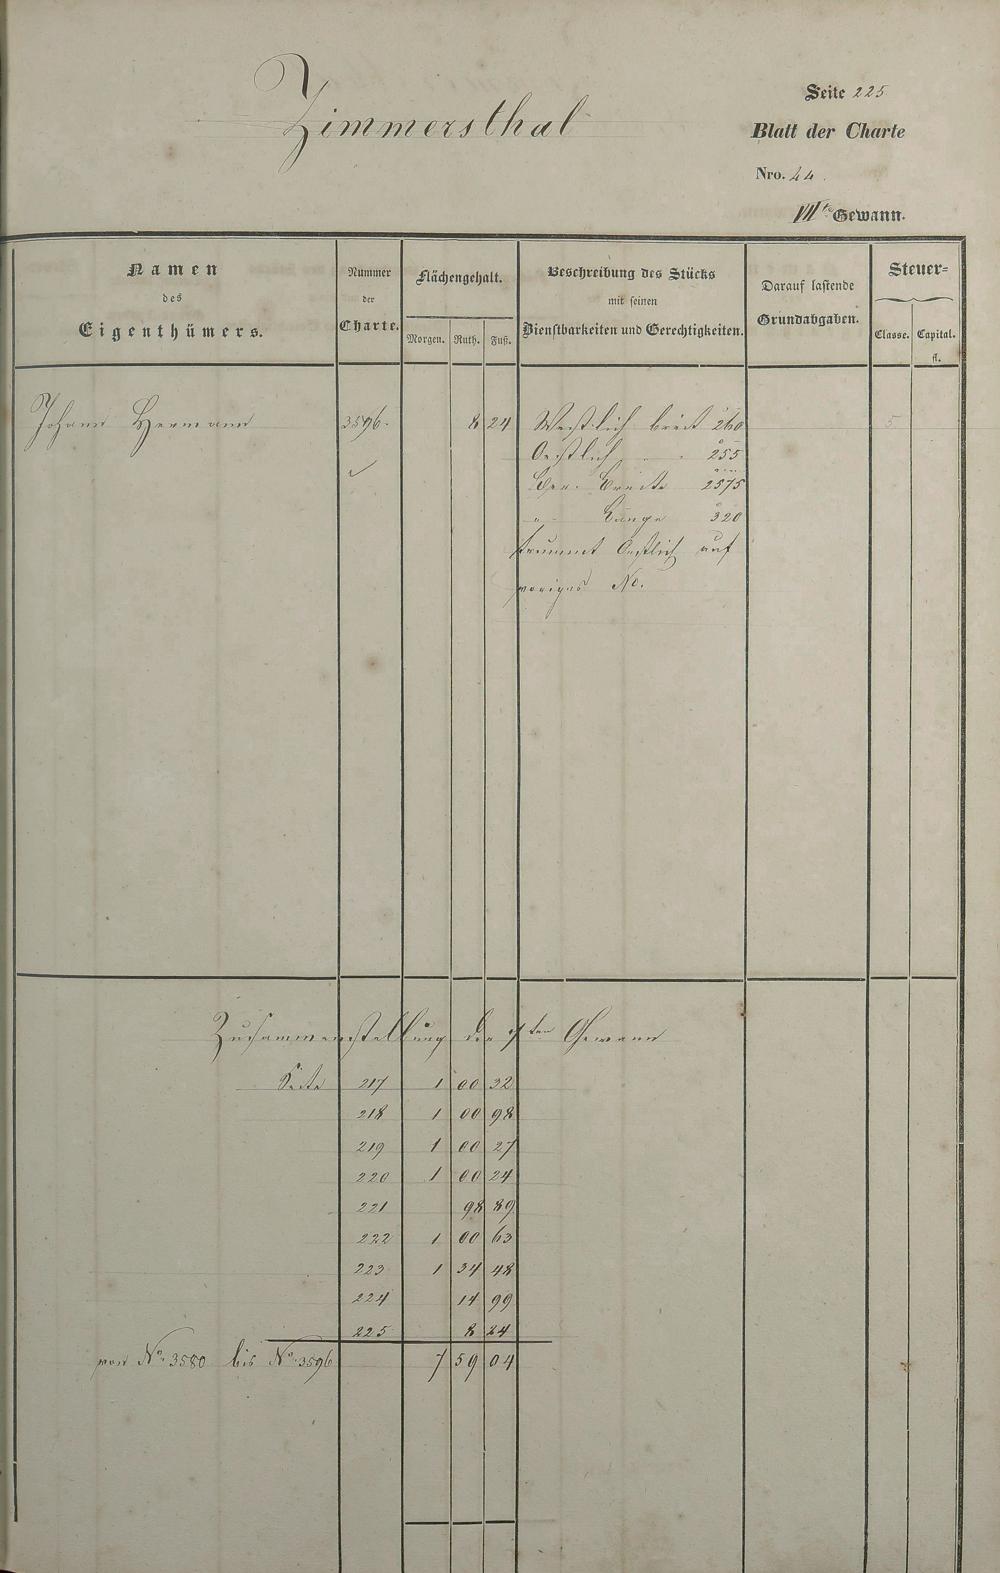 Zimmersthal
Seite 225
Blatt der Charte
Nro. 44.
VIIte Gewann.
Namen
des
Eigenthümers.
Nummer
der
Charte.
Flächengehalt.
Morgen. Ruth. Fuß.
Beschreibung des Stücks
mit seinen
Dienstbarkeiten und Gerechtigkeiten.
Darauf lastende
Grundabgaben.
Steuer=
Classe. Capital.
fl.
Johann Hermann 3596. 8 24 Westlich breit 260 5
Oestlich " " 255
Ger. Breite 2575
" Länge 320
Oestlich auf
voriges No.
Zusammenstellung der 7ten Gewann
Seite 217 1 00 32
218 1 00 98
219 1 00 27
220 1 00 24
221 98 89
222 1 00 63
223 1 34 48
224 14 99
225 8 24
von No. 3580 bis No. 3596 7 59 04